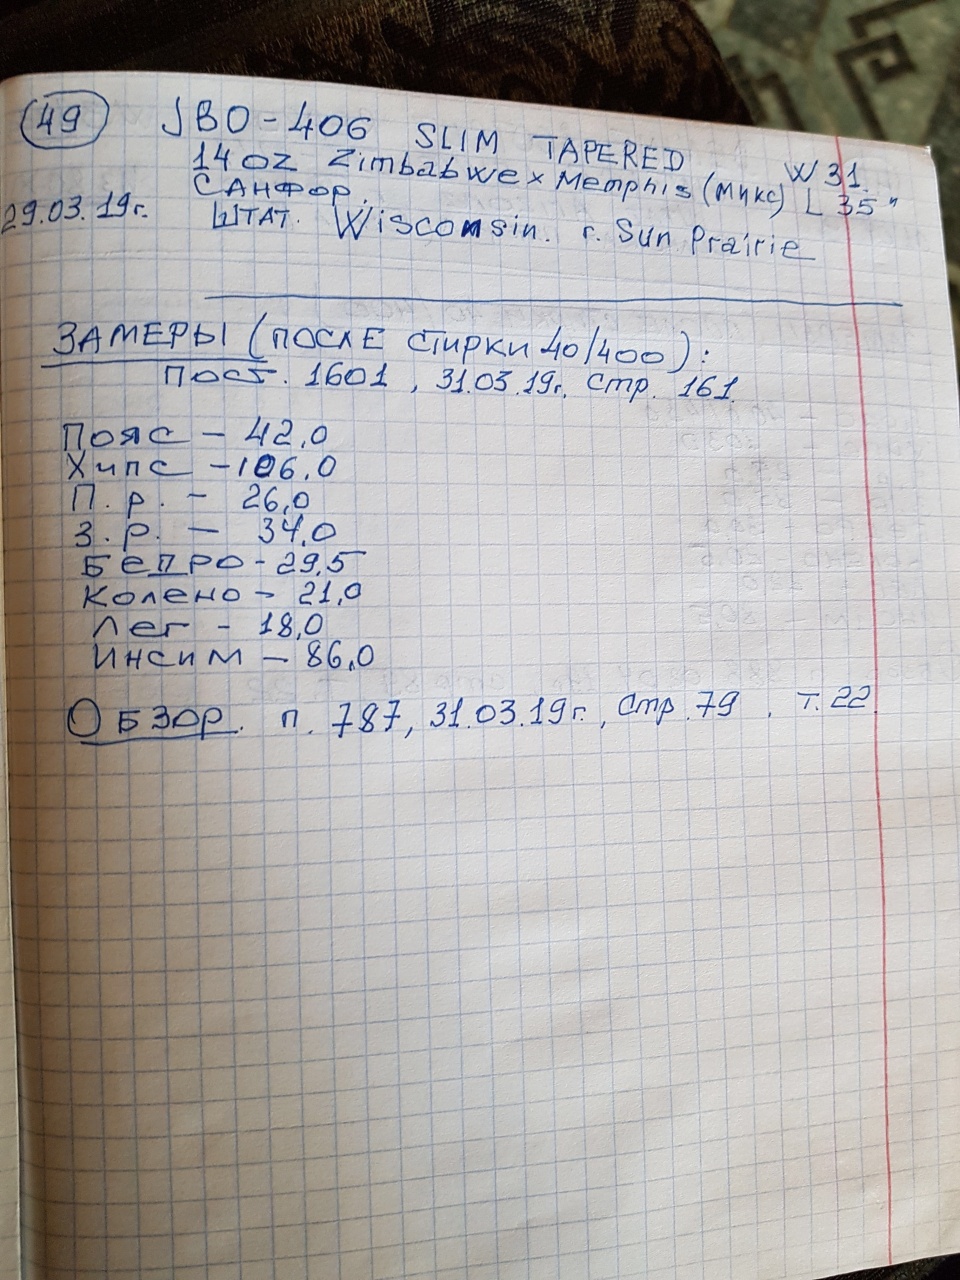 49 JBO-406 SLIM TAPERED W 31
14 oz Zimbabwe x Memphis (микс) L 35"
САНФОР.
29.03.19г. ШТАТ. Wisconsin. г. Sun Prairie
ЗАМЕРЫ (ПОСЛЕ СТИРКИ 40/400):
ПОСТ. 1601, 31.03.19г. стр. 161.
Пояс - 42,0
Хипс - 106,0
П.р. - 26,0
З.р. - 34,0
БЕДРО - 29,5
Колено - 21,0
Лег - 18,0
ИНСИМ - 86,0
ОБЗОР. п. 787, 31.03.19г., стр. 79, т. 22.